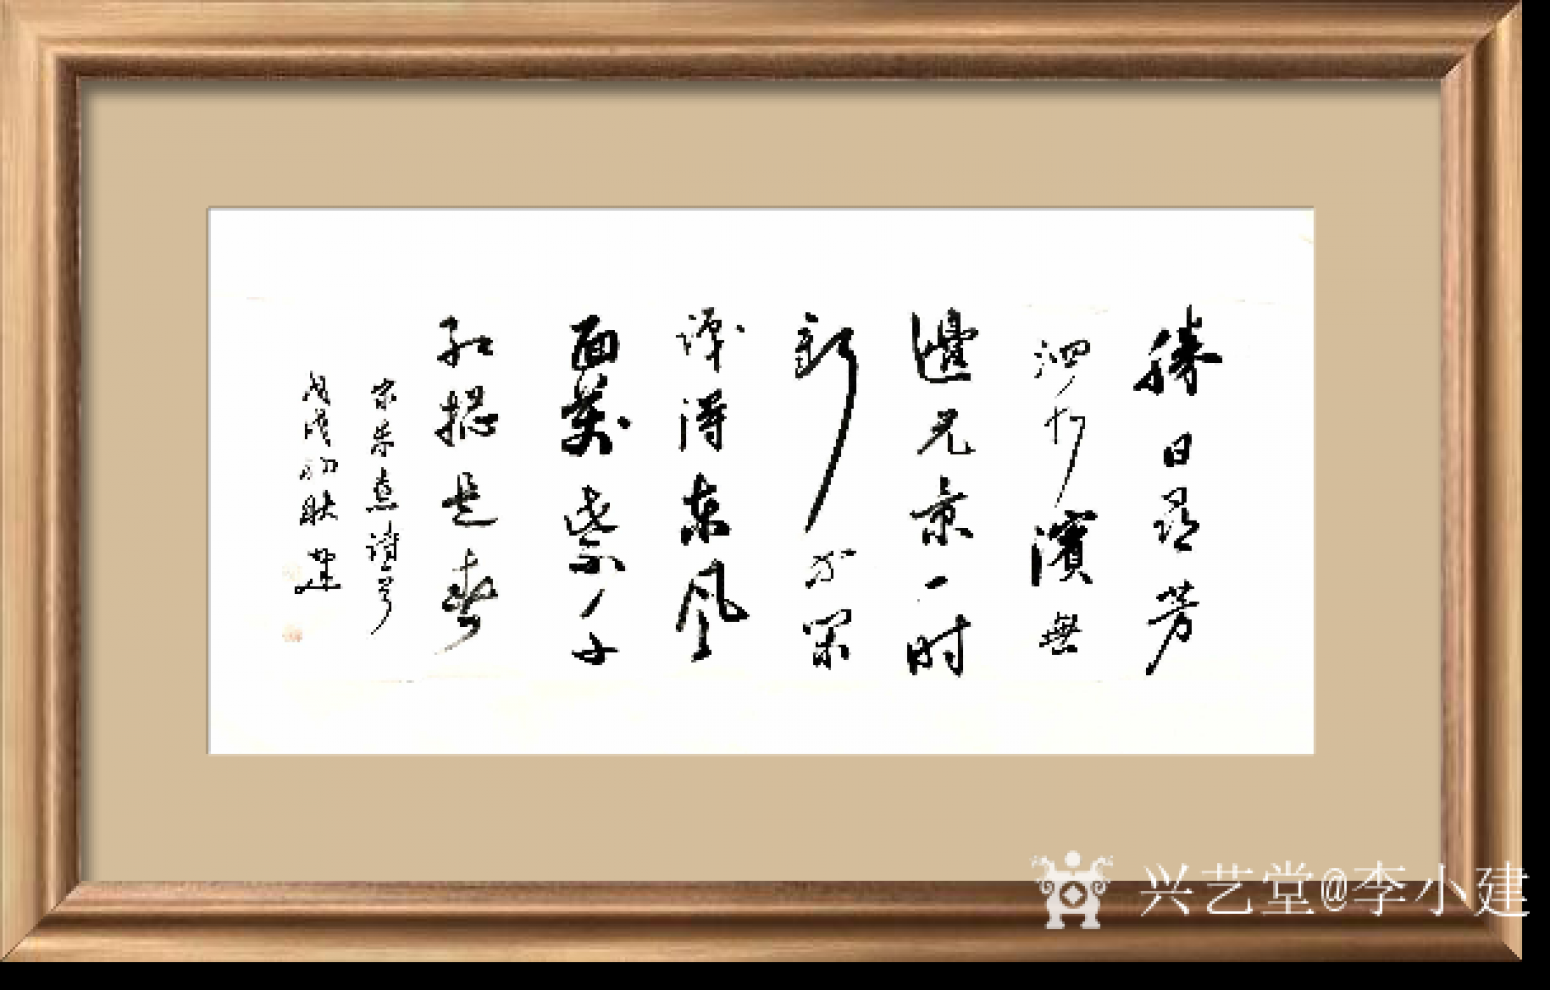 勝日尋芳
泗水濱無
邊光景一时
新等閑
識得東風
面萬紫千
紅揔是春
宋朱熹詩首
戊戌初秋建
兴艺堂@李小建